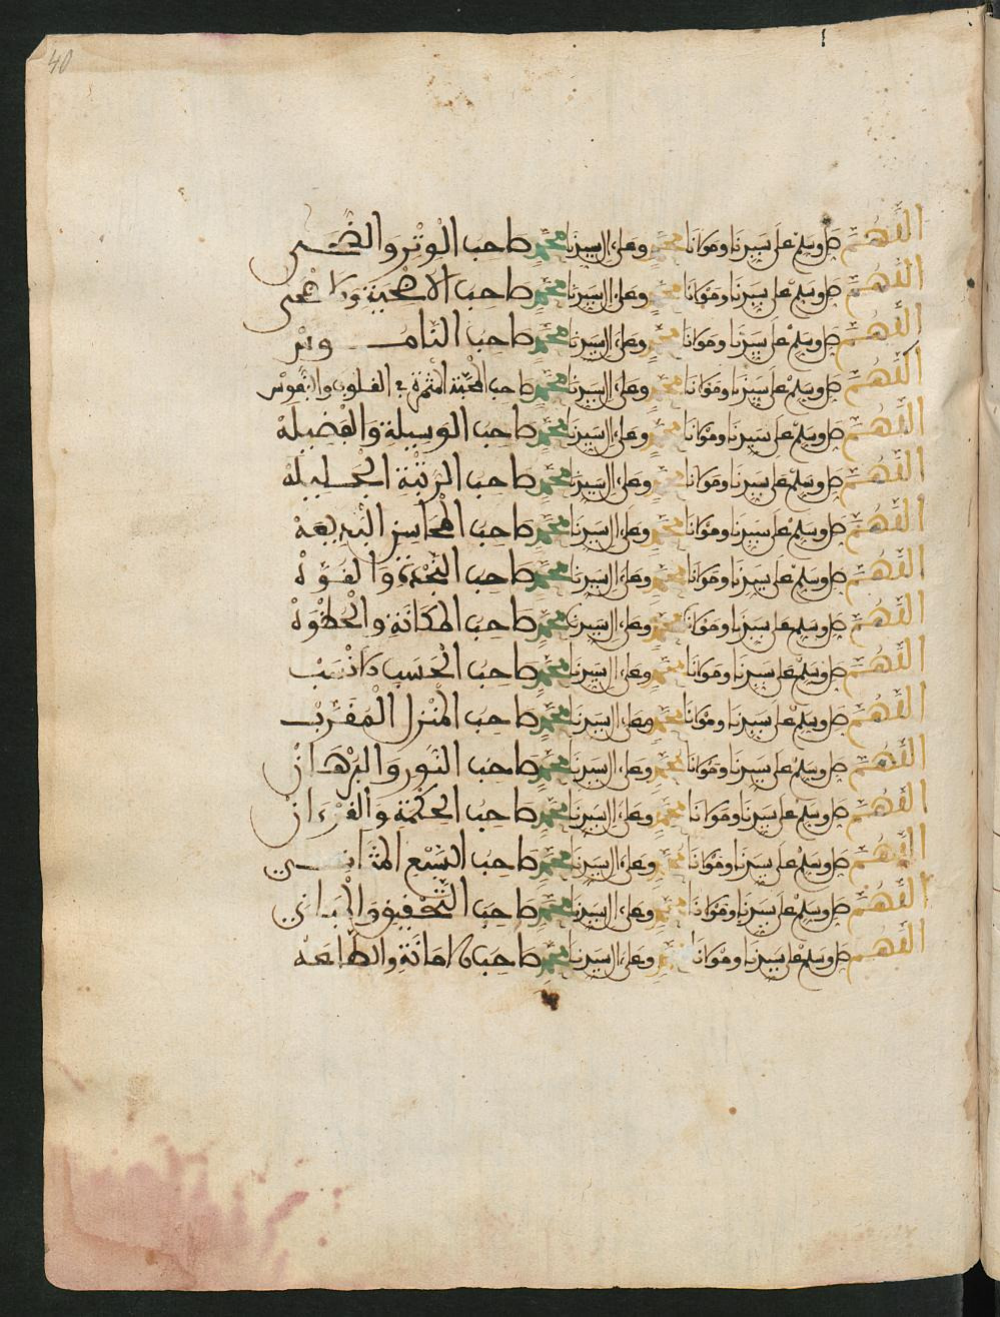 40
اللهم صل وسلم على سيدنا ومولانا محمد وعلى ءال سيدنا محمد صاحب الوتر والضحى
اللهم صل وسلم على سيدنا ومولانا محمد وعلى ءال سيدنا محمد صاحب الاضحية والاضحى
اللهم صل وسلم على سيدنا ومولانا محمد وعلى ءال سيدنا محمد صاحب
اللهم صل وسلم على سيدنا ومولانا محمد وعلى ءال سيدنا محمد صاحب المحبة المثمرة في القلوب والنفوس
اللهم صل وسلم على سيدنا ومولانا محمد وعلى ءال سيدنا محمد صاحب الوسيلة والفضيلة
اللهم صل وسلم على سيدنا ومولانا محمد وعلى ءال سيدنا محمد صاحب الرتبة الجليلة
اللهم صل وسلم على سيدنا ومولانا محمد وعلى ءال سيدنا محمد صاحب المحاسن البديعة
اللهم صل وسلم على سيدنا ومولانا محمد وعلى ءال سيدنا محمد صاحب النجدة والقوة
اللهم صل وسلم على سيدنا ومولانا محمد وعلى ءال سيدنا محمد صاحب المكانة والحظوة
اللهم صل وسلم على سيدنا ومولانا محمد وعلى ءال سيدنا محمد صاحب الحسب والنسب
اللهم صل وسلم على سيدنا ومولانا محمد وعلى ءال سيدنا محمد صاحب المنزل المقرب
اللهم صل وسلم على سيدنا ومولانا محمد وعلى ءال سيدنا محمد صاحب النور والبرهان
اللهم صل وسلم على سيدنا ومولانا محمد وعلى ءال سيدنا محمد صاحب الحكمة والقرءان
اللهم صل وسلم على سيدنا ومولانا محمد وعلى ءال سيدنا محمد صاحب السبع المثاني
اللهم صل وسلم على سيدنا ومولانا محمد وعلى ءال سيدنا محمد صاحب التحقيق
اللهم صل وسلم على سيدنا ومولانا محمد وعلى ءال سيدنا محمد صاحب الامانة والطاعة